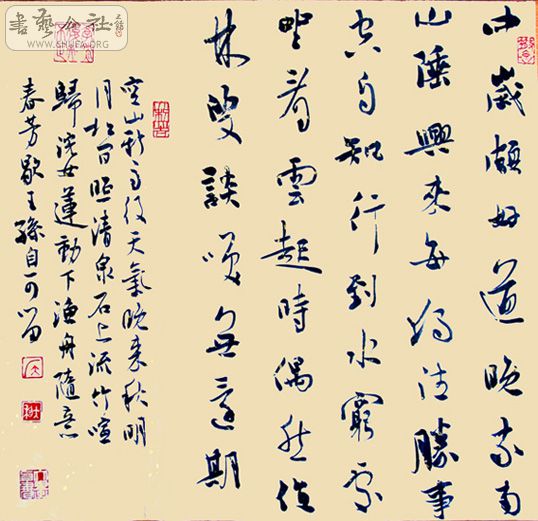 中歲頗好道晚家南
山陲興來每獨往勝事
空自知行到水窮處
坐看雲起時偶然值
林叟談咲無還期
空山新雨後天氣晚來秋明
月松間照清泉石上流竹喧
歸浣女蓮動下漁舟隨意
春芳歇王孫自可留
書藝公社